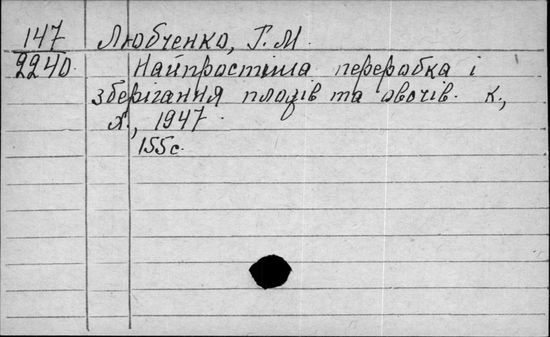 147 Любченко, Г. М.
2240. Найпростіша переробка і
зберігання плодів та овочів. К.,
Х., 1947.
155 с.